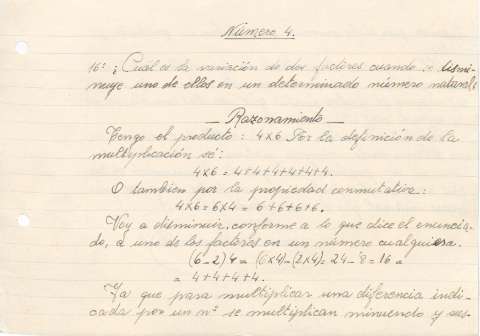 Número 4.
16ª ¿Cuál es la variación de dos factores cuando se dismi-
nuye uno de ellos en un determinado número natural?
— Razonamiento —
Tengo el producto: 4x6 Por la definición de la
multiplicación sé:
4x6 = 4+4+4+4+4+4.
O tambien por la propiedad conmutativa:
4x6 = 6x4 = 6+6+6+6.
Voy a disminuir, conforme a lo que dice el enuncia-
do, a uno de los factores en un número cualquiera.
(6-2)4 = (6x4)-(2x4) = 24-8 = 16 =
= 4+4+4+4.
Ya que para multiplicar una diferencia indi-
cada por un nº se multiplican minuendo y sus-